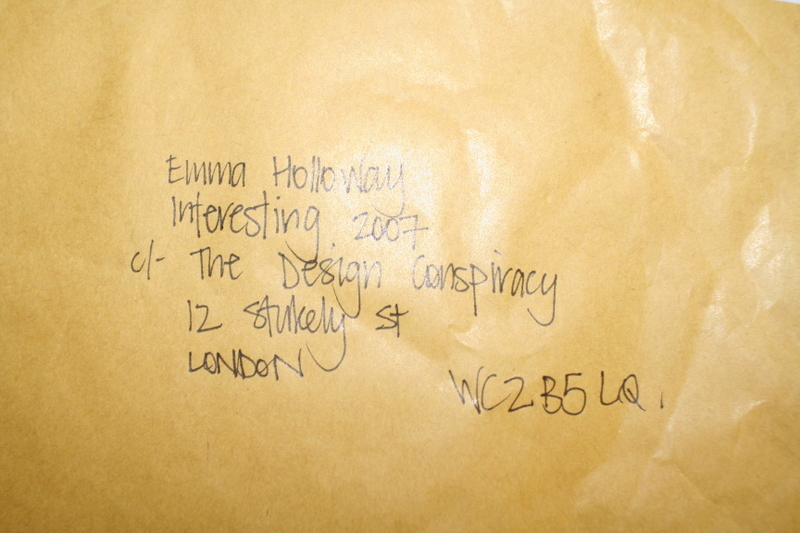 Emma Holloway
Interesting 2007
c/- The Design Conspiracy
12 Stukely St
LONDON
WC2B5LQ.